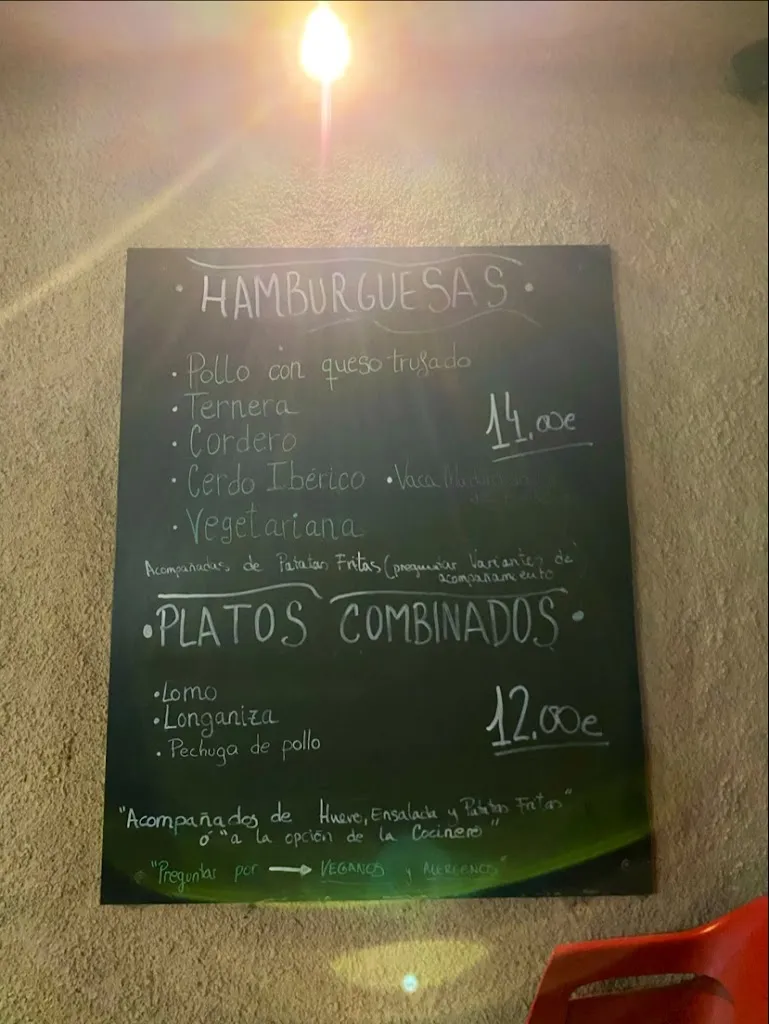 · HAMBURGUESAS ·
· Pollo con queso trufado
· Ternera
14.00€
· Cordero
· Cerdo Ibérico · Vaca
· Vegetariana
Acompañadas de Patatas Fritas (preguntar Variantes de
acompañamiento
· PLATOS COMBINADOS ·
· Lomo
· Longaniza
12.00€
· Pechuga de pollo
"Acompañados de Huevo, Ensalada y Patatas Fritas"
ó "a la opción de la Cocinero"
"Preguntas por → VEGANOS y ALERGENOS"